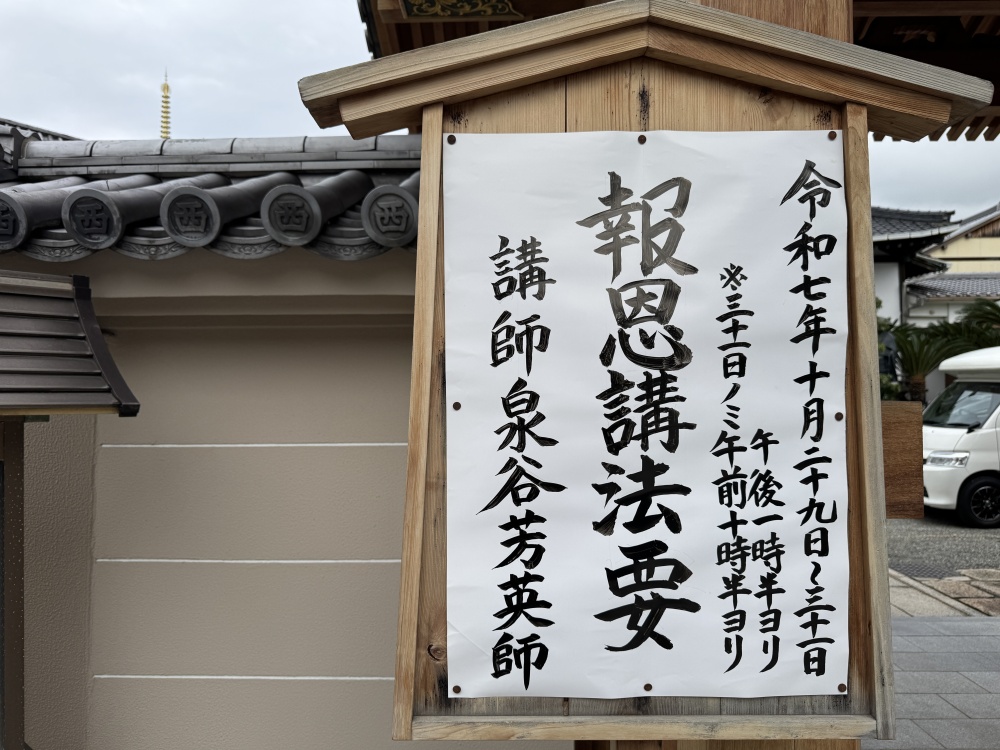 令和七年十月二十九日~三十一日
午後一時半ヨリ
※三十一日ノミ午前十時半ヨリ
報恩講法要
講師泉谷芳英師
西
西
西
西